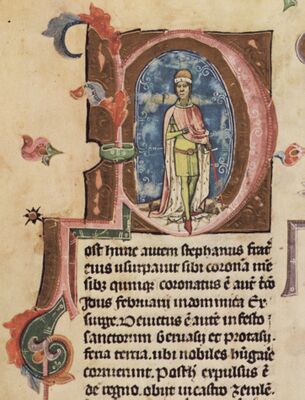 Post hunc autem stephanus frat̄
eius usurpauit sibi coronā mē
sibꝫ quinqꝫ coronatus ē aūt t̄cō
Idus februarii in dominica Ex
surge. Deuictus ē aūt in festo
sanctorum Geruasij et protasij
feria tercia. ubi nobiles hūgarie
corruerunt. Posth̄ expulsus ē
de regno. obijt in castro zemlē.